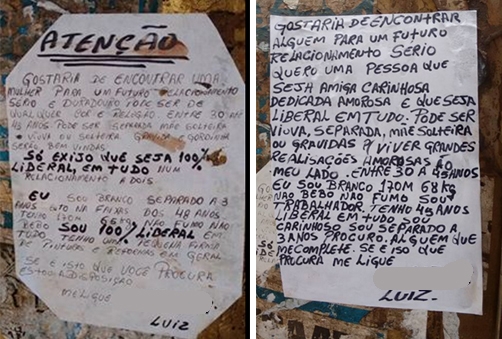 ATENÇÃO
GOSTARIA DE ENCONTRAR UMA
MULHER PARA UM FUTURO RELACIONAMENTO
SERIO E DURADOURO PODE SER DE
QUALQUER COR E RELIGIÃO. ENTRE 30 E
43 ANOS PODE SER SEPARADA MÃE SOLTEIRA
VIUVA OU SOLTEIRA. GRAVIDA GORDINHA
SERÃO BEM VINDAS.
SÓ EXIJO QUE SEJA 100%
LIBERAL, EM TUDO NUM
RELACIONAMENTO A DOIS
EU SOU BRANCO SEPARADO A 3
ANOS ESTO NA FAIXA DOS 48 ANOS.
TENHO 170M NÃO FUMO NÃO
BEBO SOU 100% LIBERAL EM
TUDO TENHO UMA PEQUENA FIRMA
DE PINTURA E REFORMAS EM GERAL
SE E ISTO QUE VOCÊ PROCURA
ESTOU A DISPOSIÇÃO
ME LIGUE
LUIZ
GOSTARIA DE ENCONTRAR
ALGUEM PARA UM FUTURO
RELACIONAMENTO SERIO
QUERO UMA PESSOA QUE
SEJA AMIGA CARINHOSA
DEDICADA AMOROSA E QUE SEJA
LIBERAL EM TUDO. PODE SER
VIUVA, SEPARADA, MÃE SOLTEIRA
OU GRAVIDAS P/ VIVER GRANDES
REALISAÇÕES AMOROSAS AO
MEU LADO. ENTRE 30 A 45 ANOS
EU SOU BRANCO 170M 68 KG
NÃO BEBO NÃO FUMO SOU
TRABALHADOR TENHO 48 ANOS
LIBERAL EM TUDO SOU
CARINHOSO SOU SEPARADO A
3 ANOS PROCURO. ALGUEM QUE
ME COMPLETE. SE E ISO QUE
PROCURA ME LIGUE
LUIZ.